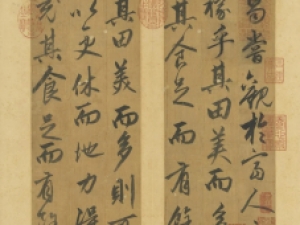 曷嘗觀於富人之
稼乎其田美而多
其食足而有餘
其田美而多則可
以更休而地力得
完其食足而有餘